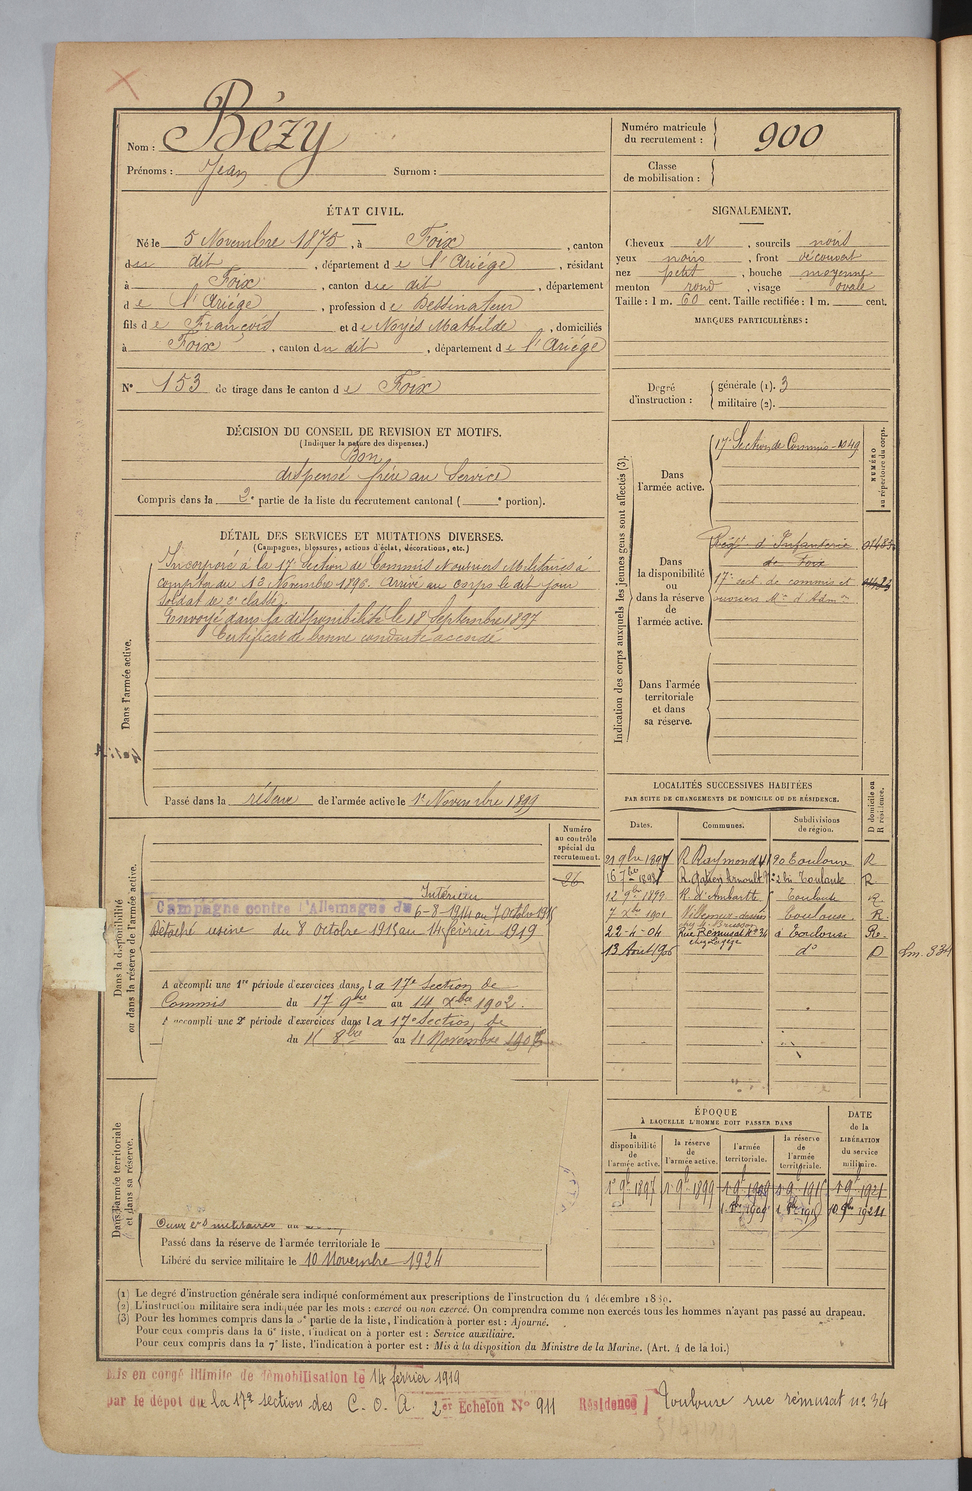 Nom : Bézy
Prénoms : Jean Surnom :
Numéro matricule du recrutement : 900
Classe de mobilisation :
ÉTAT CIVIL.
Né le 5 Novembre 1875, à Foix, canton
du dit, département de l'Ariége, résidant
à Foix, canton du dit, département
de l'Ariége, profession de Dessinateur
fils de François et de Noyès Mathilde, domiciliés
à Foix, canton du dit, département de l'Ariége
N° 153 de tirage dans le canton de Foix
SIGNALEMENT.
Cheveux et, sourcils noirs
yeux noirs, front découvert
nez petit, bouche moyenne
menton rond, visage ovale
Taille : 1 m. 60 cent. Taille rectifiée : 1 m. cent.
MARQUES PARTICULIÈRES :
Degré d'instruction : générale (1). 3
militaire (2).
DÉCISION DU CONSEIL DE REVISION ET MOTIFS.
(Indiquer la nature des dispenses.)
Bon
dispensé frère au Service
Compris dans la 2e partie de la liste du recrutement cantonal ( e portion).
DÉTAIL DES SERVICES ET MUTATIONS DIVERSES.
(Campagnes, blessures, actions d'éclat, décorations, etc.)
Dans l'armée active.
Incorporé à la 17e Section de Commis Nouvriers Militaires à
compter du 13 Novembre 1896. Arrivé au corps le dit jour
soldat de 2e classe.
Envoyé dans la disponibilité le 18 Septembre 1897
Certificat de bonne conduite accordé
Passé dans la réserve de l'armée active le 1r Novembre 1899
Indication des corps auxquels les jeunes gens sont affectés (3).
NUMÉRO au répertoire du corps.
Dans l'armée active.
17e Section de Commis - 1049
Dans la disponibilité ou dans la réserve de l'armée active.
Régt d'Infanterie
de Foix
17e sect. de commis et
ouvriers Mre d'Admon
Dans l'armée territoriale et dans sa réserve.
LOCALITÉS SUCCESSIVES HABITÉES
PAR SUITE DE CHANGEMENTS DE DOMICILE OU DE RÉSIDENCE.
Dates. Communes. Subdivisions de région. D domicile ou R résidence.
21 9bre 1897 R. Raymond 41 20 Toulouse R
16 7bre 1898 Toulouse R
12 9bre 1899 Toulouse R
7 Xbre 1901 Toulouse R.
22-4-04 Rue Rémusat N° 34 à Toulouse Re.
13 Aout 1906 do D
Dans la disponibilité ou dans la réserve de l'armée active.
Numéro au contrôle spécial du recrutement.
26
Intérieur
Campagne contre l'Allemagne du 6-8-1914 au 7 Octobre 1915
Détaché usine du 8 Octobre 1915 au 14 février 1919
A accompli une 1re période d'exercices dans la 17e Section de
Commis du 17 9bre au 14 Xbre 1902.
A accompli une 2e période d'exercices dans la 17e Section de
du 8bre au 11 Novembre
Dans l'armée territoriale et dans sa réserve.
Ouvers militaires au
Passé dans la réserve de l'armée territoriale le
Libéré du service militaire le 10 Novembre 1924
ÉPOQUE
À LAQUELLE L'HOMME DOIT PASSER DANS
DATE de la LIBÉRATION du service militaire.
la disponibilité de l'armée active. la réserve de l'armée active. l'armée territoriale. la réserve de l'armée territoriale.
1r 9b 1897 1 9b 1899 1 9b 1909 1 9b 1915 1 9b 1921
(1) Le degré d'instruction générale sera indiqué conformément aux prescriptions de l'instruction du 4 décembre 1889.
(2) L'instruction militaire sera indiquée par les mots : exercé ou non exercé. On comprendra comme non exercés tous les hommes n'ayant pas passé au drapeau.
(3) Pour les hommes compris dans la 5e partie de la liste, l'indication à porter est : Ajourné.
Pour ceux compris dans la 6e liste, l'indication à porter est : Service auxiliaire.
Pour ceux compris dans la 7e liste, l'indication à porter est : Mis à la disposition du Ministre de la Marine. (Art. 4 de la loi.)
Mis en congé illimité de démobilisation le 14 février 1919
par le dépôt de la 17e section des C. O. A. 2er Echelon N° 911 Résidence Toulouse rue rémusat no 34